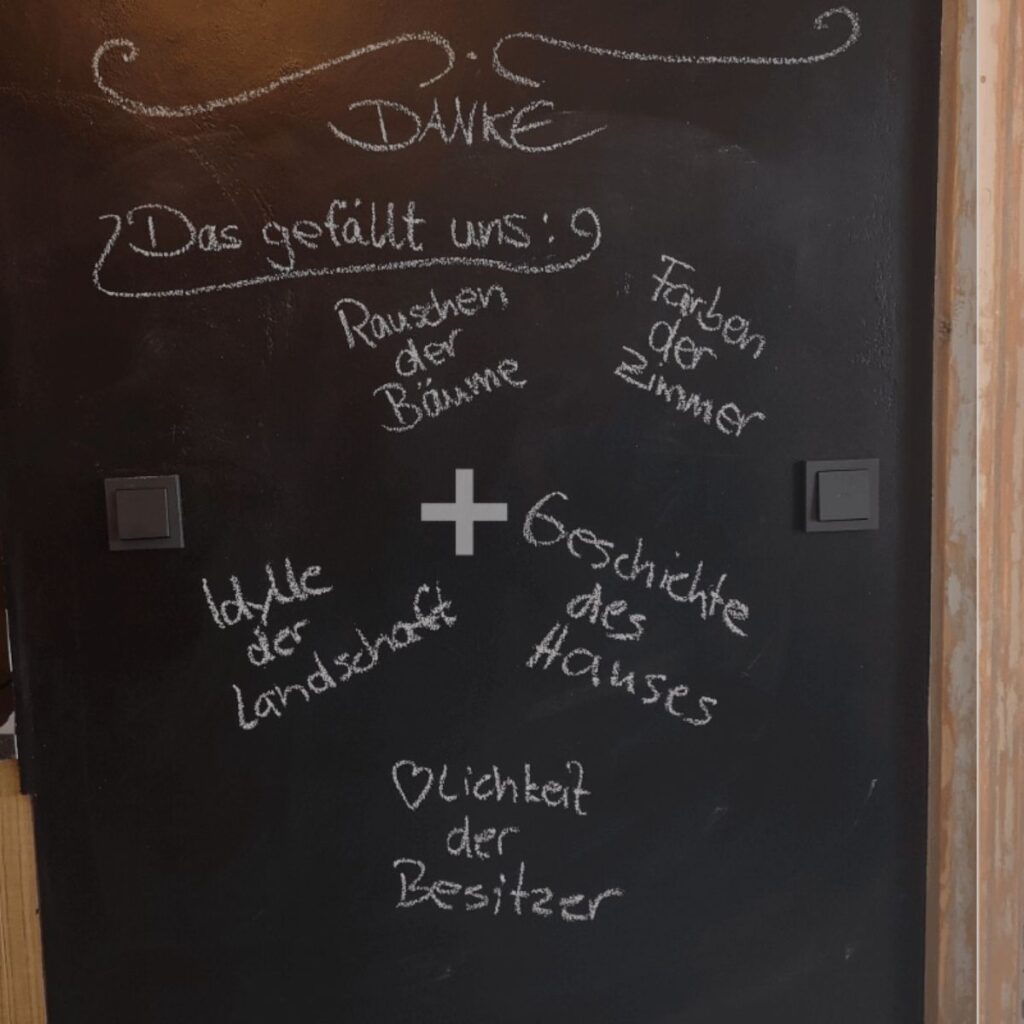 DANKE
Das gefällt uns:
Rauschen
der
Bäume
Farben
der
Zimmer
Idylle
der
Landschaft
Geschichte
des
Hauses
♡lichkeit
der
Besitzer